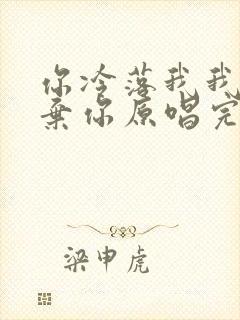 你冷落我我
弃你原唱完
梁申虎